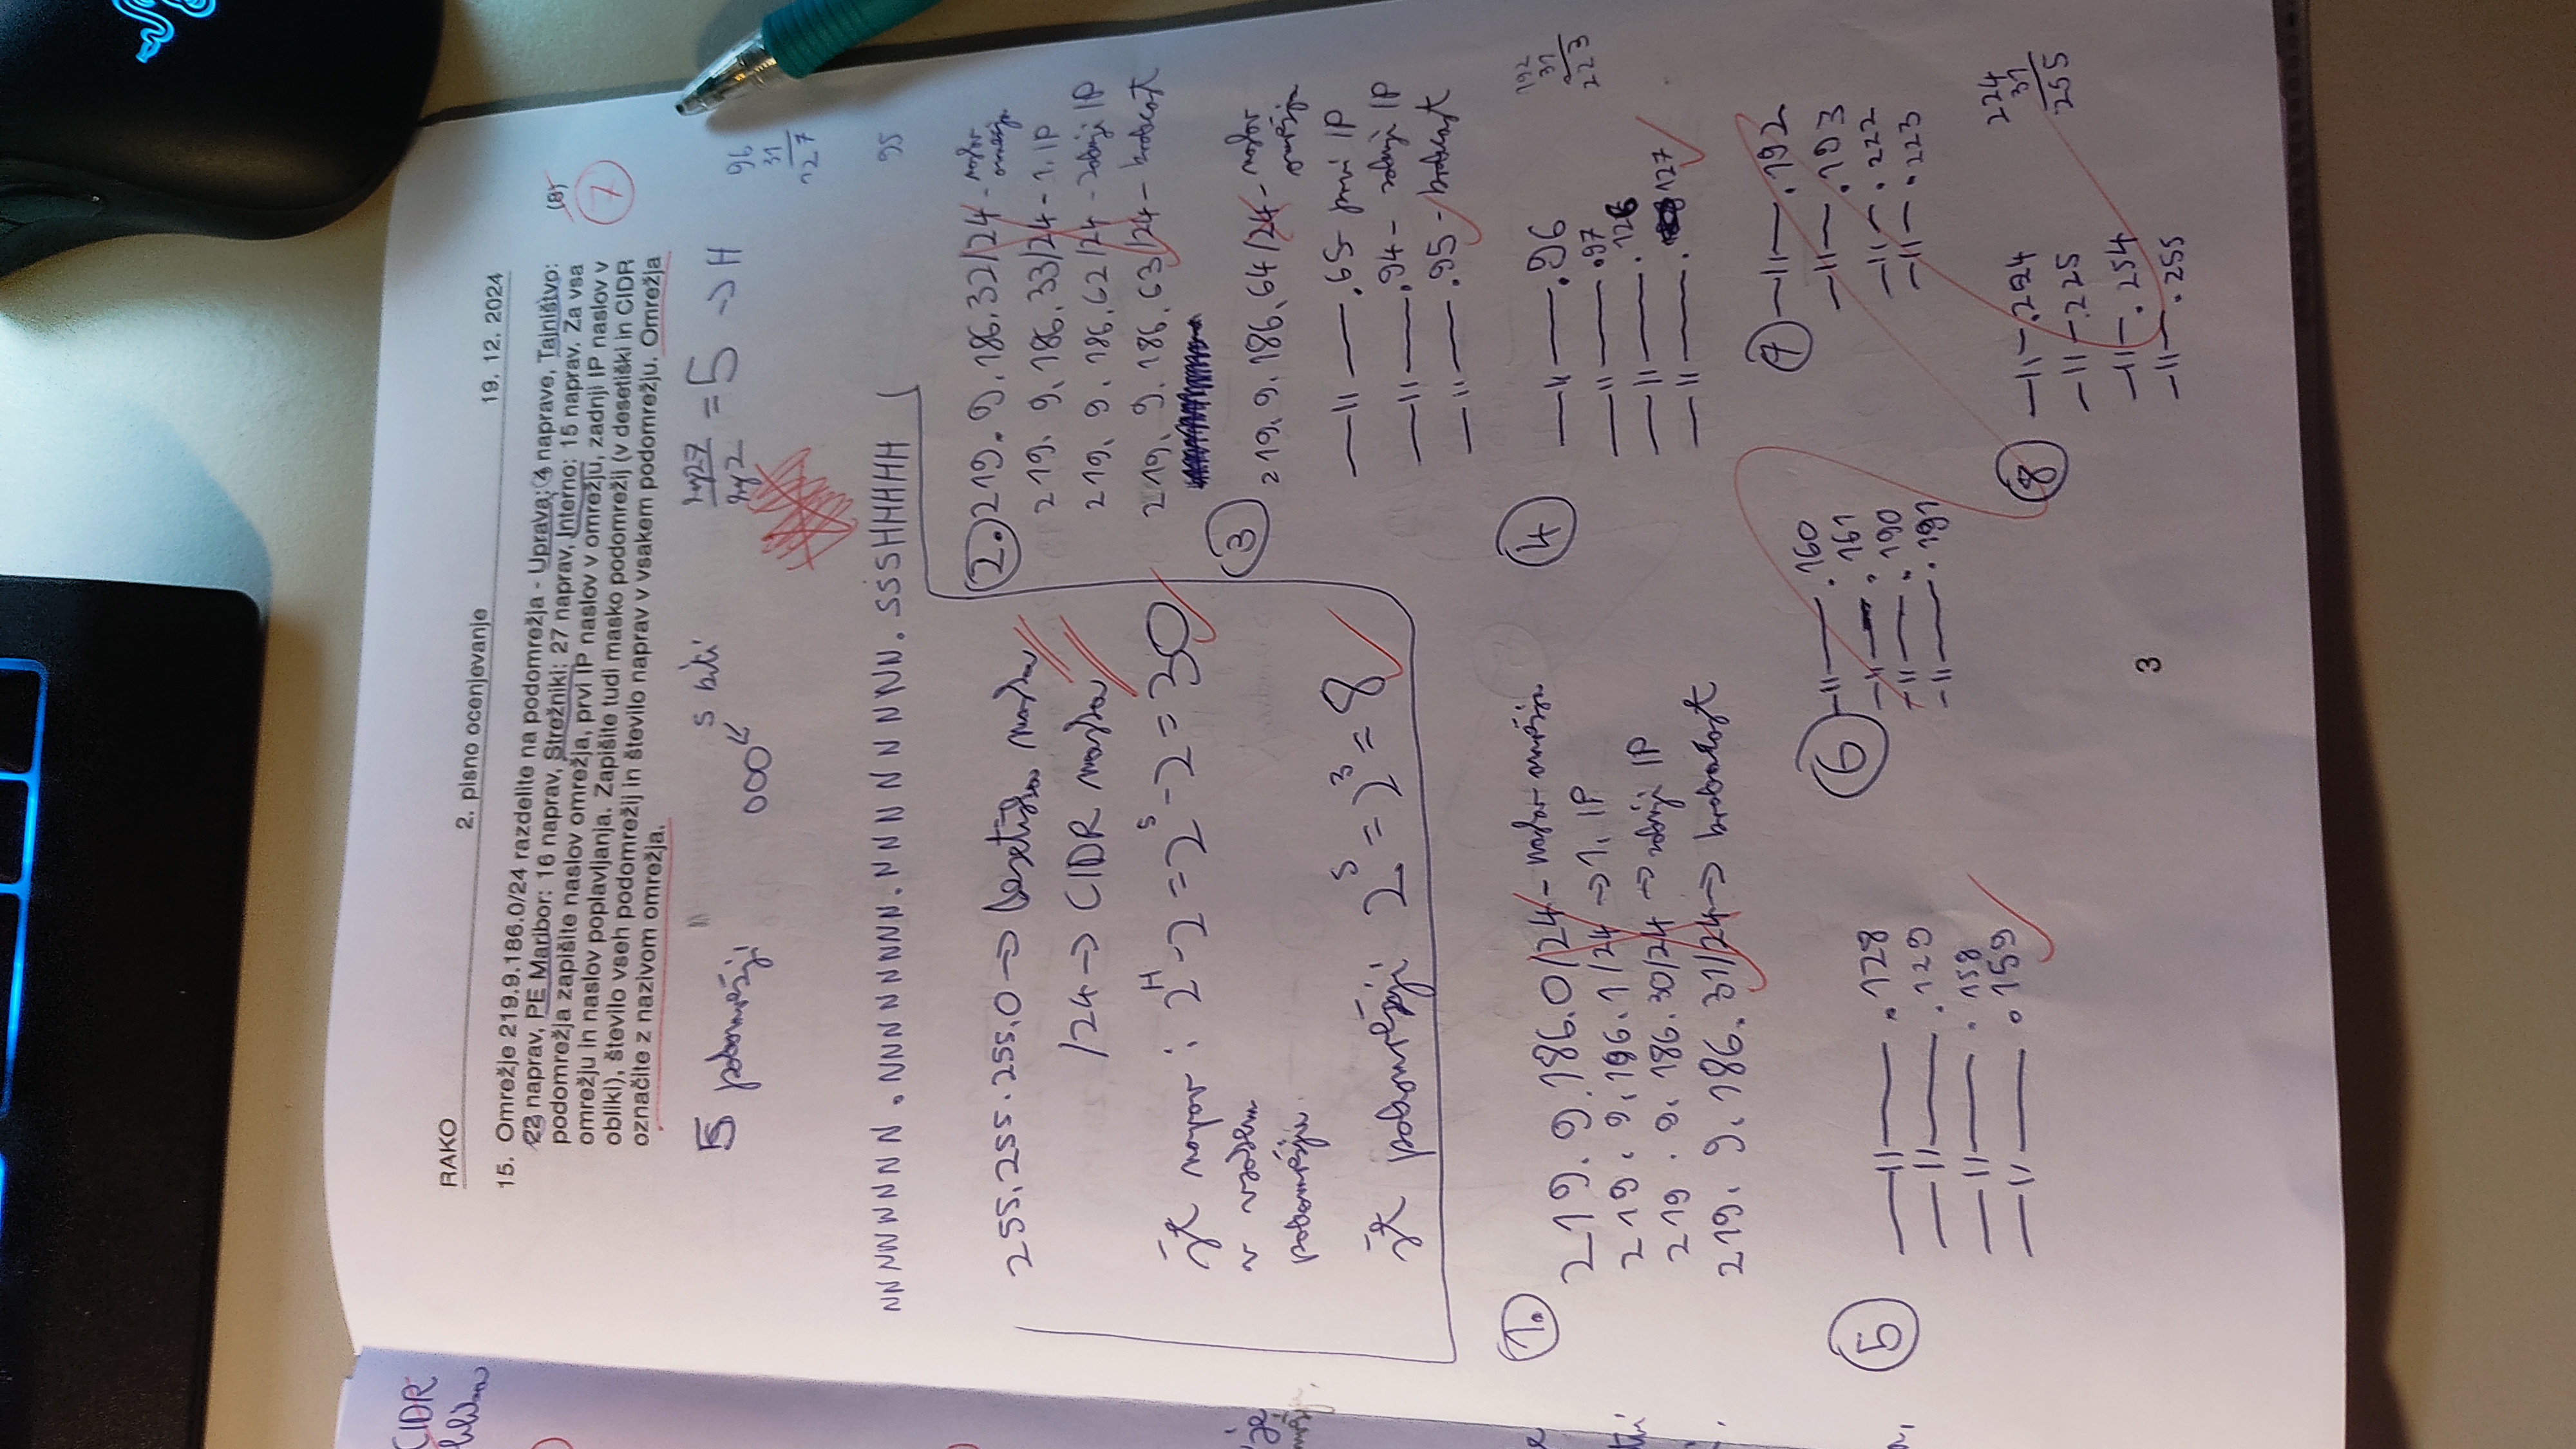 CIDR
RAKO
2. pisno ocenjevanje
19. 12. 2024
15. Omrežje 219.9.186.0/24 razdelite na podomrežja - Uprava: 4 naprave, Tajništvo:
22 naprav, PE Maribor: 16 naprav, Strežniki: 27 naprav, Interno: 15 naprav. Za vsa
podomrežja zapišite naslov omrežja, prvi IP naslov v omrežju, zadnji IP naslov v
omrežju in naslov poplavljanja. Zapišite tudi masko podomrežij (v desetiški in CIDR
obliki), število vseh podomrežij in število naprav v vsakem podomrežju. Omrežja
označite z nazivom omrežja.
(8)
7
5 podomrežji
000
S biti
log27
log2
= 5 → H
96
31
127
NNNNNNNN.NNNNNNNN.NNNNNNNN.SSSHHHHH
95
255.255.255.0 → desetiška maska
/24 → CIDR maska
št naprav : 2^H - 2 = 2^5 - 2 = 30
v vsakem
podomrežju
št podomrežji 2^S = 2^3 = 8
1.
219.9.186.0/24 - naslov omrežja
219.9.196.1/24 → 1. IP
219.9.186.30/24 → zadnji IP
219.9.186.31/24 →
2. 219.9.186.32/24 - naslov
omrežja
219.9.186.33/24 - 1. IP
219.9.186.62/24 - zadnji IP
219.9.186.63/24 - brodcast
3
219.9.186.64/24 - naslov
omrežja
—ıı— .65 - prvi IP
—ıı— .94 - zadnji IP
—ıı— .95 - brodcast
4
—ıı— .96
—ıı— .97
—ıı— .126
—ıı— .127
192
31
223
5
—ıı— .128
—ıı— .129
—ıı— .158
—ıı— .159
6
—ıı— .160
—ıı— .161
—ıı— .190
—ıı— .191
7
—ıı— .192
—ıı— .193
—ıı— .222
—ıı— .223
8
—ıı— .224
—ıı— .225
—ıı— .254
—ıı— .255
224
31
255
3